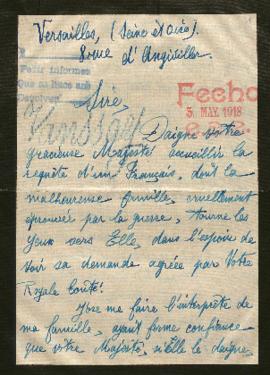 Versailles, (Seine et Oise).
Rue d'Angiviller
Pedir informes
Fecho
5. MAY. 1918
Sire,
Daigne Votre
gracieuse Majesté accueillir la
requête d'un Français, dont la
malheureuse famille, cruellement
éprouvée par la guerre, tourne les
yeux vers Elle, dans l'espoir de
voir sa demande agréée par Votre
Royale bonté!
J'ose me faire l'interprète de
ma famille, ayant ferme confiance
que Votre Majesté, si Elle le daigne,